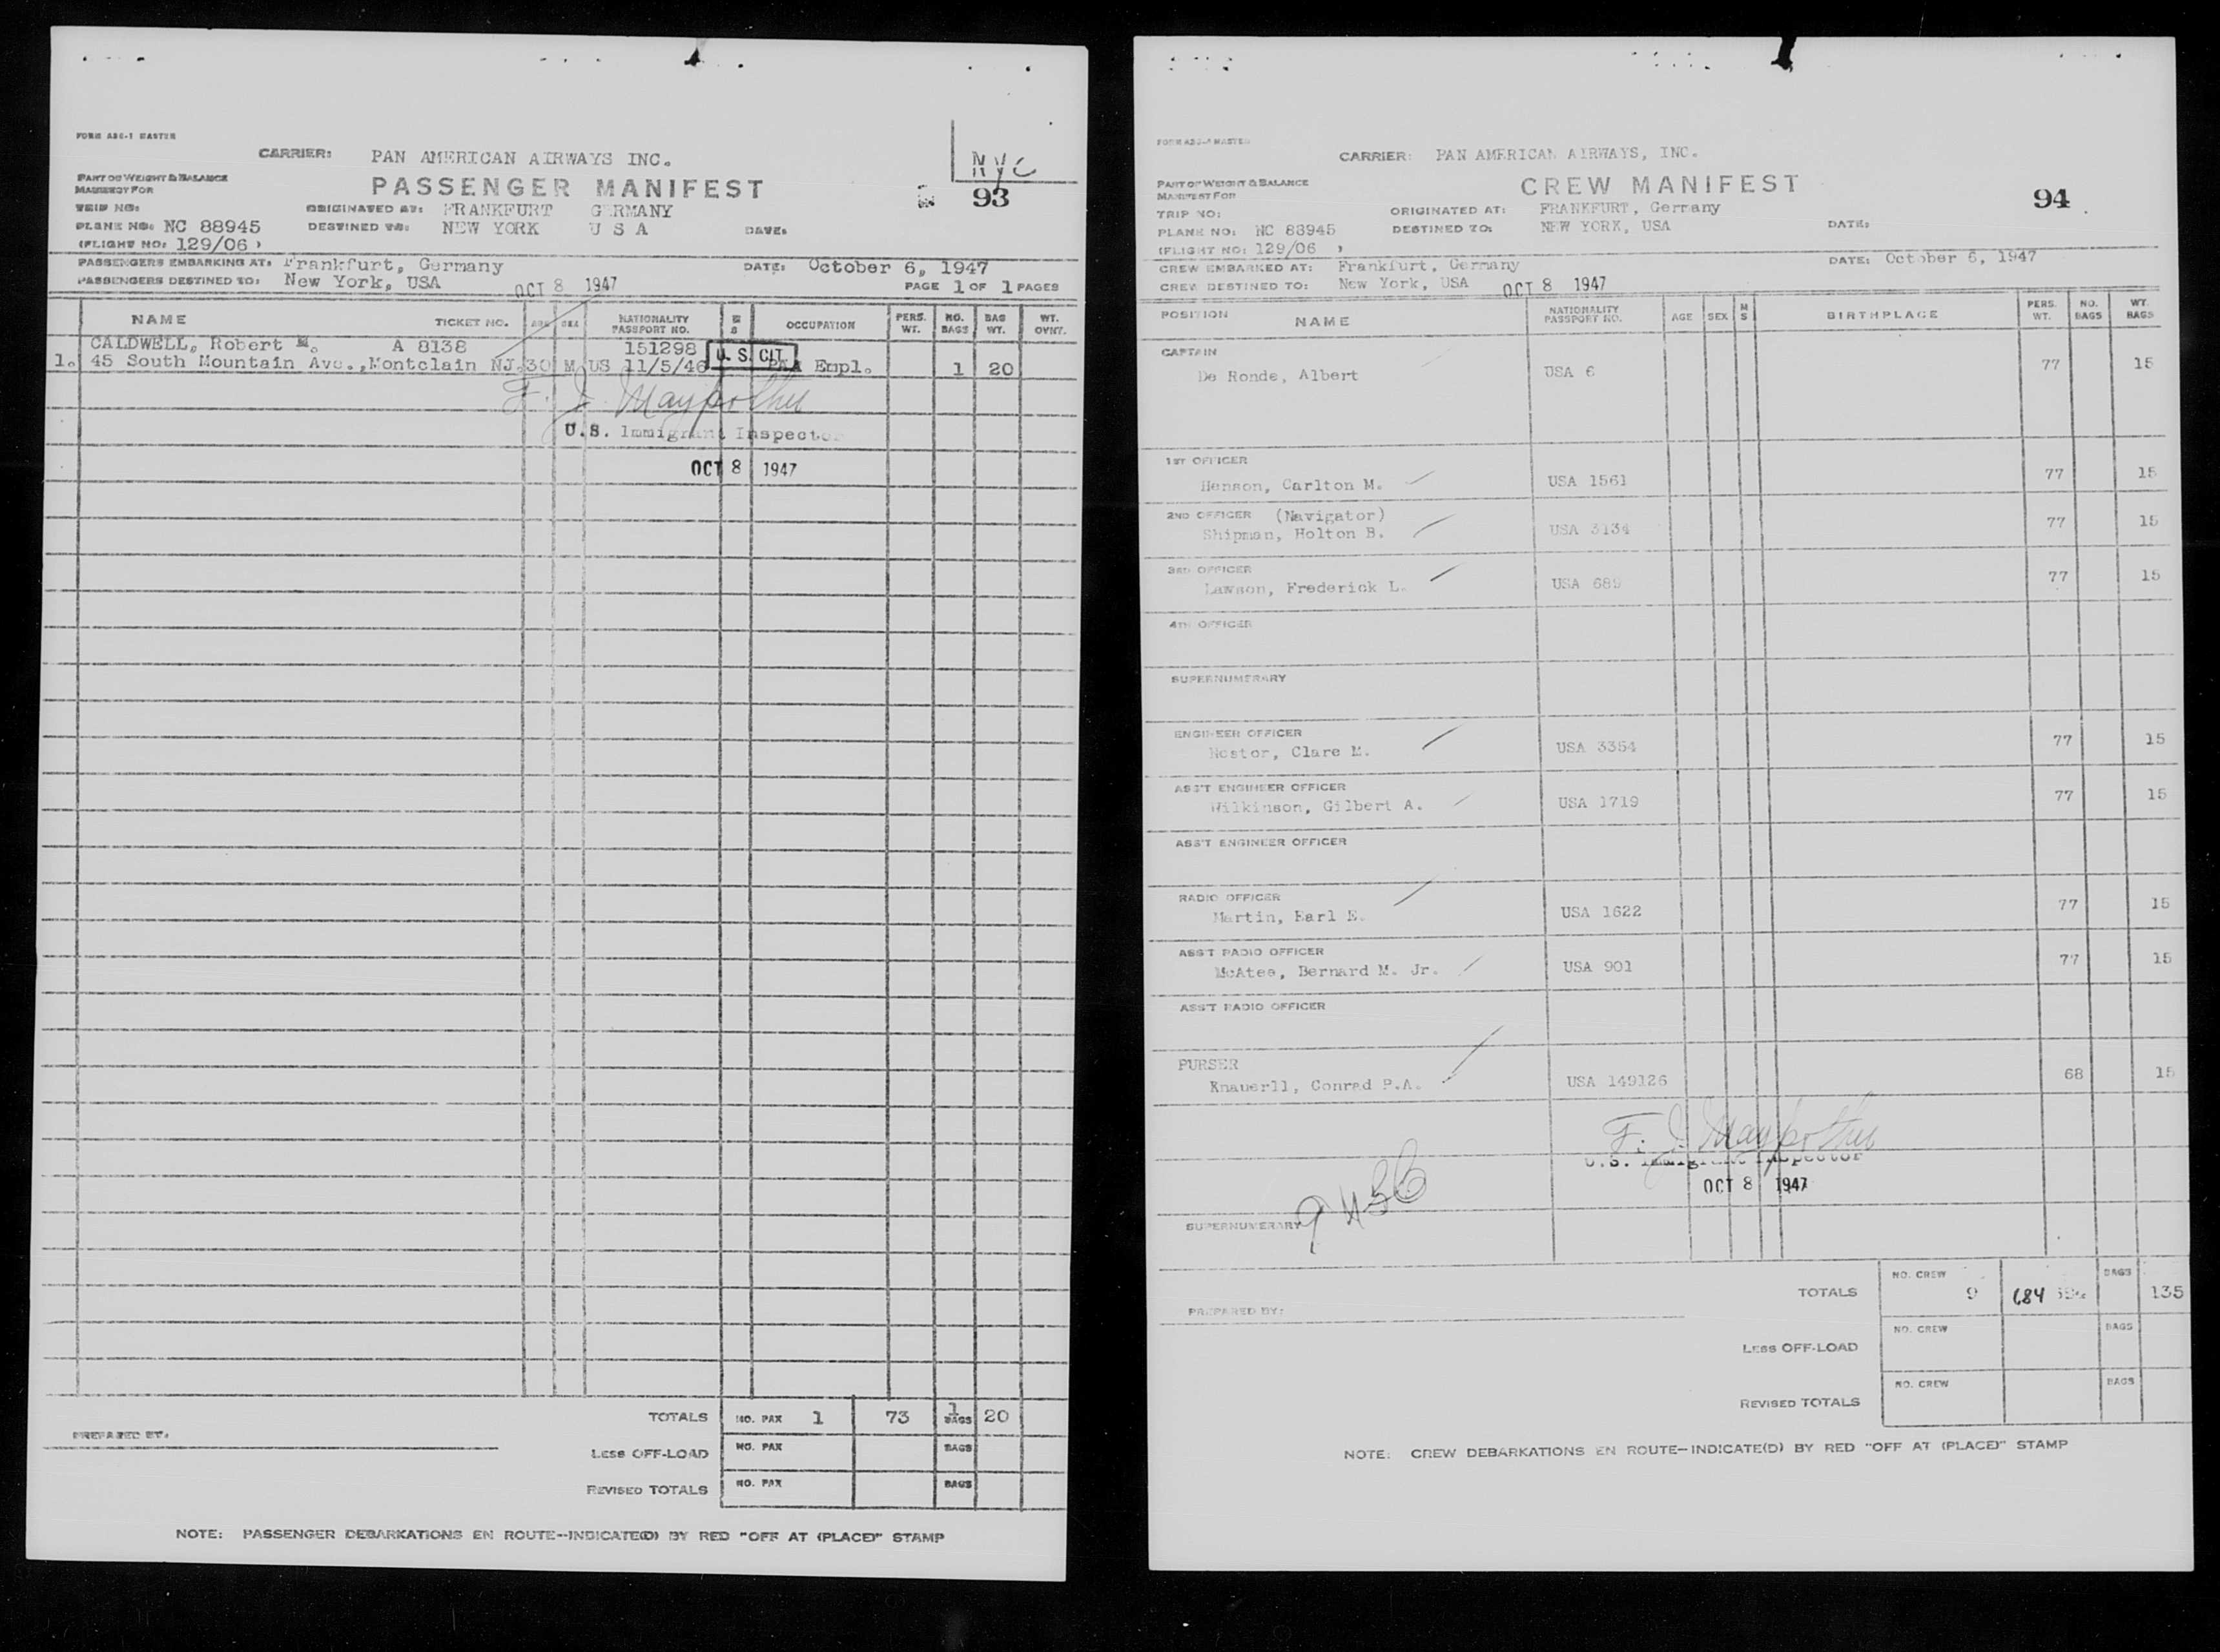 FORM ABE-1 MASTER
CARRIER: PAN AMERICAN AIRWAYS INC.
NYC
PART OF WEIGHT & BALANCE
MANIFEST FOR
PASSENGER MANIFEST
93
TRIP NO:
ORIGINATED AT: FRANKFURT GERMANY
PLANE NO: NC 88945
DESTINED TO: NEW YORK U S A
DATE:
(FLIGHT NO: 129/06 )
PASSENGERS EMBARKING AT: Frankfurt, Germany
DATE: October 6, 1947
PASSENGERS DESTINED TO: New York, USA
OCT 8 1947
PAGE 1 OF 1 PAGES
NAME TICKET NO. AGE SEX NATIONALITY PASSPORT NO. M S OCCUPATION PERS. WT. NO. BAGS BAG WT. WT. OVNT.
CALDWELL, Robert M. A 8138 151298
1. 45 South Mountain Ave., Montclain NJ. 30 M US 11/5/46 U. S. CIT. PAA Empl. 1 20
U.S. Immigrant Inspector
OCT 8 1947
TOTALS NO. PAX 1 73 1 BAGS 20
PREPARED BY:
LESS OFF-LOAD NO. PAX BAGS
REVISED TOTALS NO. PAX BAGS
NOTE: PASSENGER DEBARKATIONS EN ROUTE--INDICATE(D) BY RED "OFF AT (PLACE)" STAMP
CARRIER: PAN AMERICAN AIRWAYS, INC.
PART OF WEIGHT & BALANCE
MANIFEST FOR
CREW MANIFEST
94
TRIP NO:
ORIGINATED AT: FRANKFURT, Germany
PLANE NO: NC 88945
DESTINED TO: NEW YORK, USA
DATE:
(FLIGHT NO: 129/06 )
CREW EMBARKED AT: Frankfurt, Germany
DATE: October 6, 1947
CREW DESTINED TO: New York, USA
OCT 8 1947
POSITION NAME NATIONALITY PASSPORT NO. AGE SEX M S BIRTHPLACE PERS. WT. NO. BAGS WT. BAGS
CAPTAIN
De Ronde, Albert USA 6 77 15
1ST OFFICER
Henson, Carlton M. USA 1561 77 15
2ND OFFICER (Navigator)
Shipman, Holton B. USA 3134 77 15
3RD OFFICER
Lawson, Frederick L. USA 689 77 15
4TH OFFICER
SUPERNUMERARY
ENGINEER OFFICER
Clare M. USA 3354 77 15
ASS'T ENGINEER OFFICER
Wilkinson, Gilbert A. USA 1719 77 15
ASS'T ENGINEER OFFICER
RADIO OFFICER
Martin, Earl E. USA 1622 77 15
ASS'T RADIO OFFICER
McAtee, Bernard M. Jr. USA 901 77 15
ASS'T RADIO OFFICER
PURSER
Knauerll, Conrad P.A. USA 149126 68 15
U.S. Immigrant Inspector
OCT 8 1947
SUPERNUMERARY
TOTALS NO. CREW 9 684 BAGS 135
PREPARED BY:
LESS OFF-LOAD NO. CREW BAGS
REVISED TOTALS NO. CREW BAGS
NOTE: CREW DEBARKATIONS EN ROUTE--INDICATE(D) BY RED "OFF AT (PLACE)" STAMP